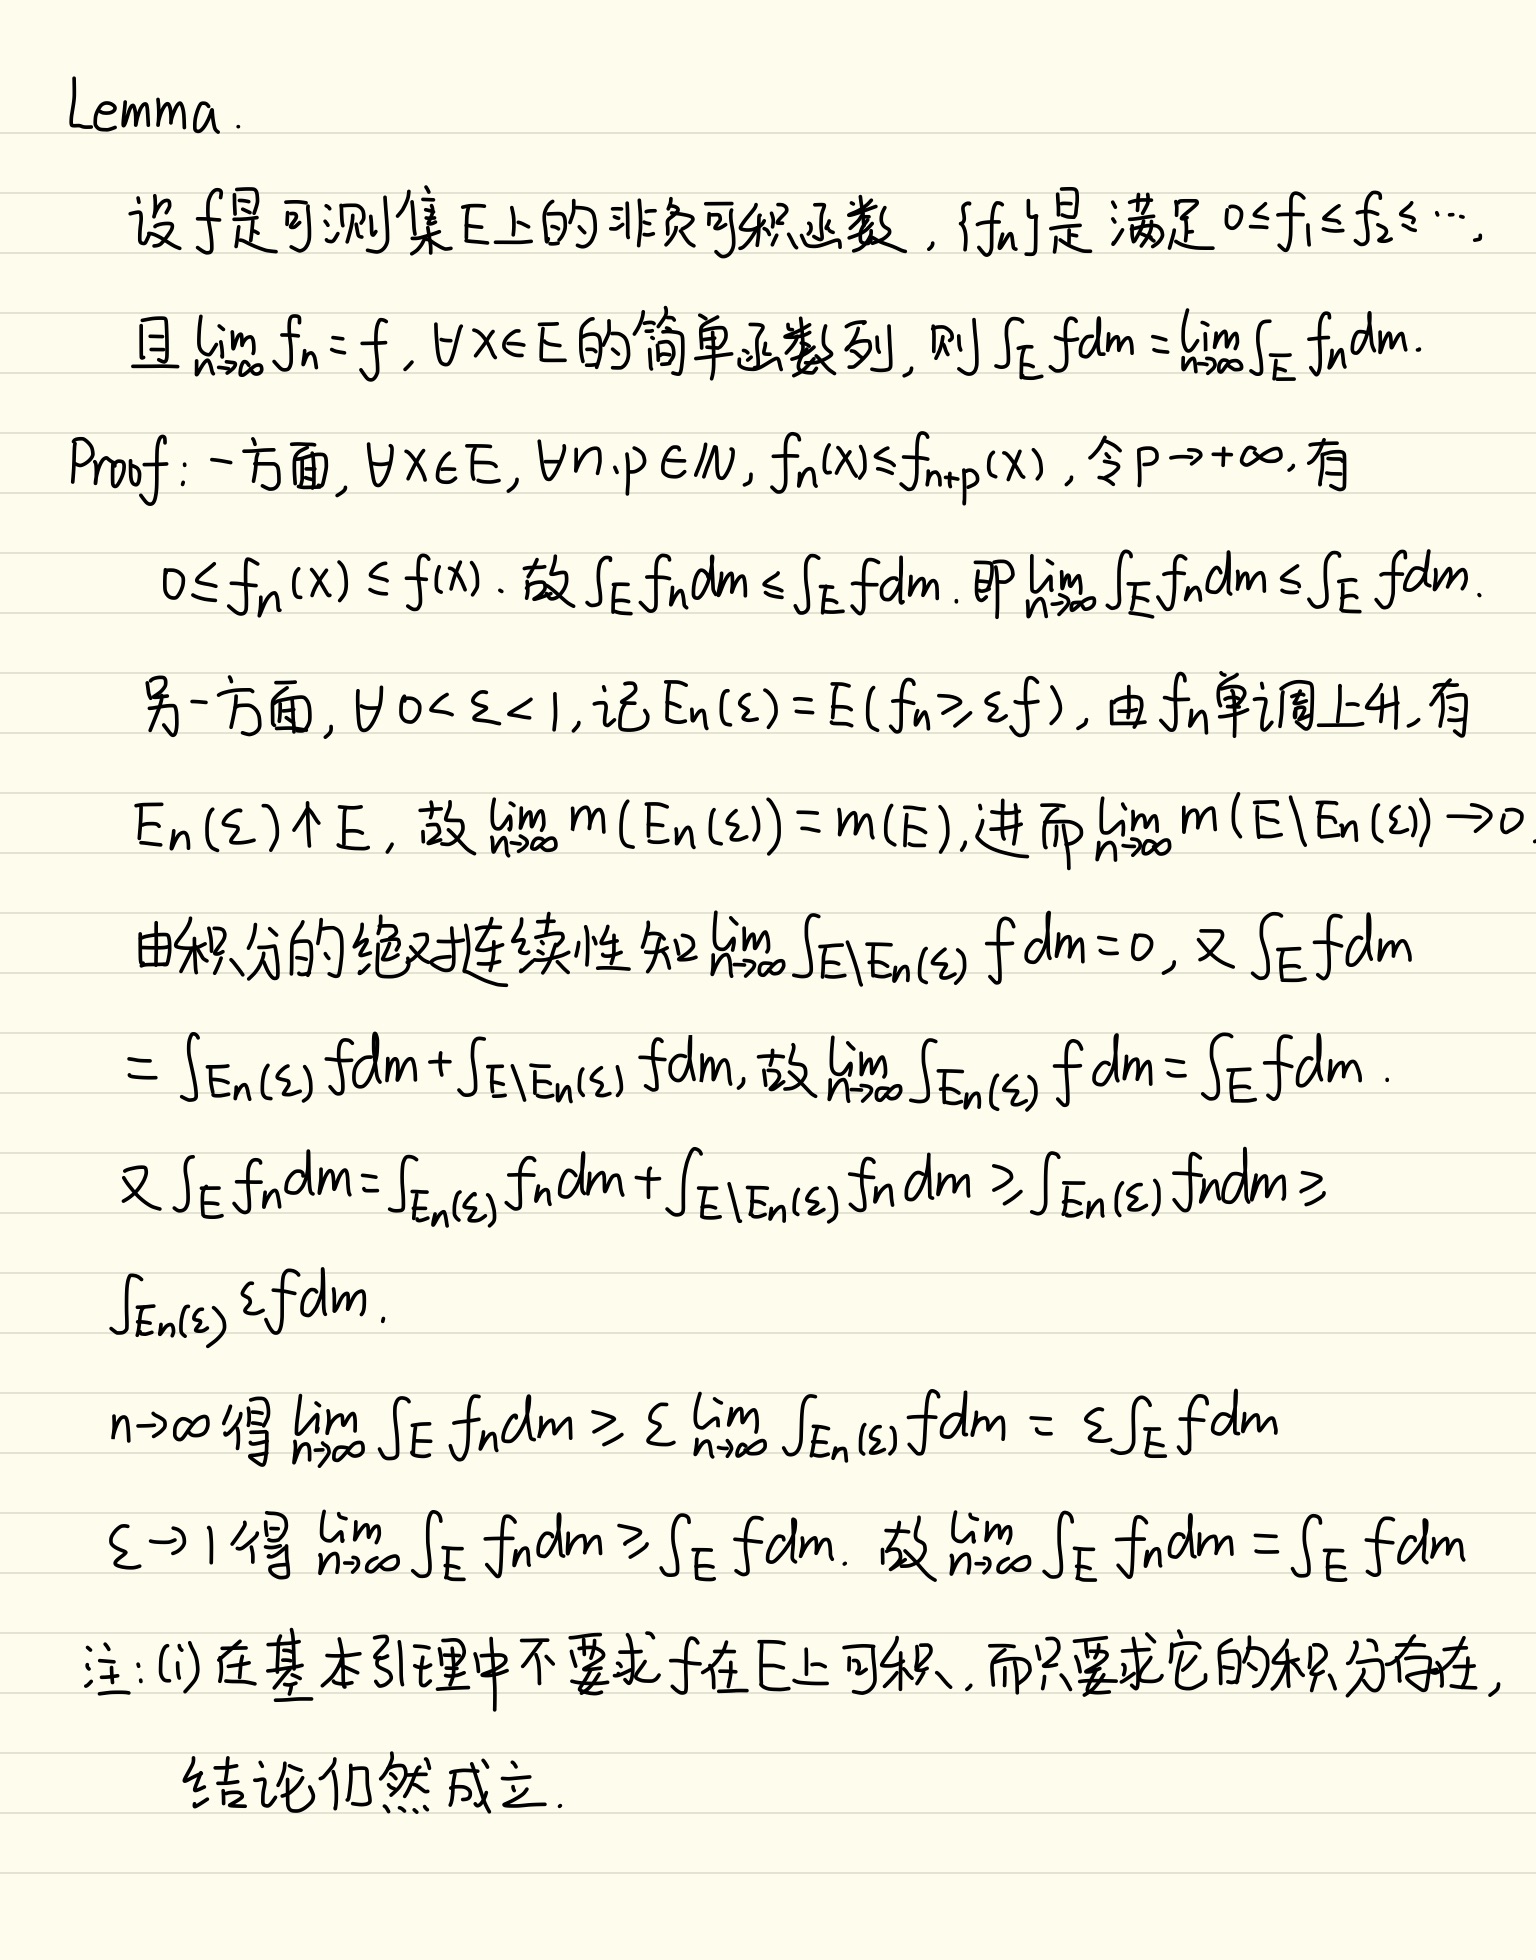 Lemma.
设 f 是可测集 E 上的非负可积函数, {fₙ} 是满足 0≤f₁≤f₂≤⋯,
且 lim_{n→∞} fₙ = f, ∀x∈E 的简单函数列, 则 ∫_E fdm = lim_{n→∞} ∫_E fₙdm.
Proof: 一方面, ∀x∈E, ∀n.p∈ℕ, fₙ(x)≤f_{n+p}(x), 令 p→+∞, 有
0≤fₙ(x)≤f(x). 故 ∫_E fₙdm ≤ ∫_E fdm. 即 lim_{n→∞} ∫_E fₙdm ≤ ∫_E fdm.
另一方面, ∀0<ε<1, 记 Eₙ(ε) = E(fₙ≥εf), 由 fₙ 单调上升, 有
Eₙ(ε)↑E, 故 lim_{n→∞} m(Eₙ(ε)) = m(E), 进而 lim_{n→∞} m(E\Eₙ(ε)) →0.
由积分的绝对连续性知 lim_{n→∞} ∫_{E\Eₙ(ε)} f dm = 0, 又 ∫_E fdm
= ∫_{Eₙ(ε)} fdm + ∫_{E\Eₙ(ε)} fdm, 故 lim_{n→∞} ∫_{Eₙ(ε)} f dm = ∫_E fdm.
又 ∫_E fₙdm = ∫_{Eₙ(ε)} fₙdm + ∫_{E\Eₙ(ε)} fₙdm ≥ ∫_{Eₙ(ε)} fₙdm ≥
∫_{Eₙ(ε)} εfdm.
n→∞ 得 lim_{n→∞} ∫_E fₙdm ≥ ε lim_{n→∞} ∫_{Eₙ(ε)} fdm = ε∫_E fdm
ε→1 得 lim_{n→∞} ∫_E fₙdm ≥ ∫_E fdm. 故 lim_{n→∞} ∫_E fₙdm = ∫_E fdm
注: (i) 在基本引理中不要求 f 在 E 上可积, 而只要求它的积分存在,
结论仍然成立.